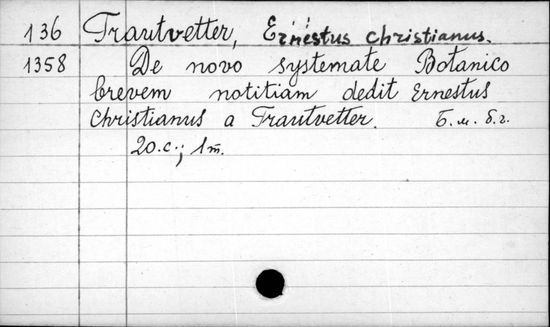 136 Trautvetter, Ernestus Christianus.
1358 De novo systemate Botanico
brevem notitiam dedit Ernestus
Christianus a Trautvetter. Б.м.б.г.
20.с.; 1т.